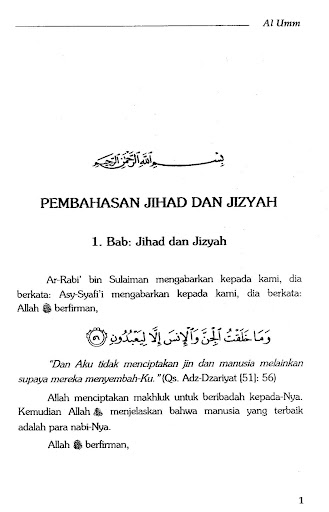 Al Umm
بِسْمِ اللَّهِ الرَّحْمَٰنِ الرَّحِيمِ
PEMBAHASAN JIHAD DAN JIZYAH
1. Bab: Jihad dan Jizyah
Ar-Rabi' bin Sulaiman mengabarkan kepada kami, dia
berkata: Asy-Syafi'i mengabarkan kepada kami, dia berkata:
Allah ﷻ berfirman,
وَمَا خَلَقْتُ الْجِنَّ وَالْإِنسَ إِلَّا لِيَعْبُدُونِ ۝٥٦
"Dan Aku tidak menciptakan jin dan manusia melainkan
supaya mereka menyembah-Ku." (Qs. Adz-Dzariyat [51]: 56)
Allah menciptakan makhluk untuk beribadah kepada-Nya.
Kemudian Allah ﷻ menjelaskan bahwa manusia yang terbaik
adalah para nabi-Nya.
Allah ﷻ berfirman,
1